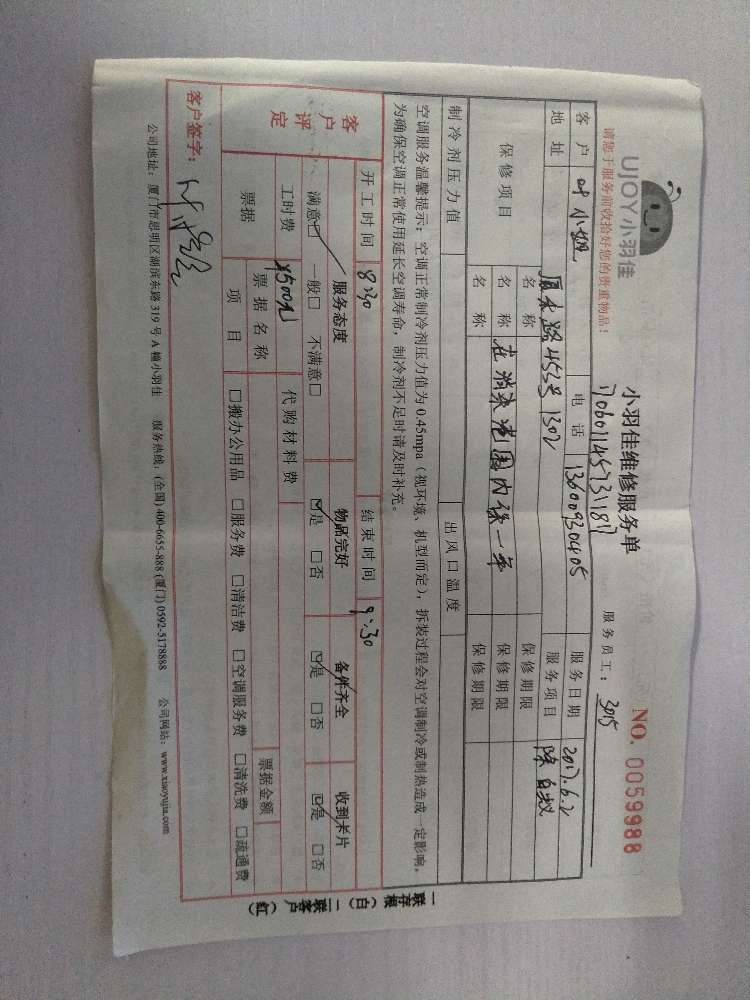 UJOY小羽佳
小羽佳维修服务单
NO. 0059988
请您于服务前收拾好您的贵重物品!
服务员工: 3015
客户 叶小姐 电话 13600930405 服务日期 2017.6.2
地址 厦禾路453号1302 服务项目 除白蚁
保修项目 名称 保修期限
名称 在消杀范围内保一年 保修期限
名称 保修期限
制冷剂压力值 出风口温度
空调服务温馨提示:空调正常制冷剂压力值为0.45mpa(视环境、机型而定),拆装过程会对空调制冷或制热造成一定影响。
为确保空调正常使用延长空调寿命,制冷剂不足时请及时补充。
开工时间 8:30 结束时间 9:30
客户评定 服务态度 物品完好 备件齐全 收到卡片
满意☑ 一般□ 不满意□ ☑是 □否 ☑是 □否 ☑是 □否
工时费 ¥500元 代购材料费
票据 票据名称 票据金额
项目 □搬办公用品 □服务费 □清洁费 □空调服务费 □清洗费 □疏通费
客户签字:
公司地址:厦门市思明区湖滨东路319号A幢小羽佳 服务热线:(全国)400-6655-888 (厦门)0592-5178888 公司网站:www.xiaoyujia.com
一联存根(白) 二联客户(红)